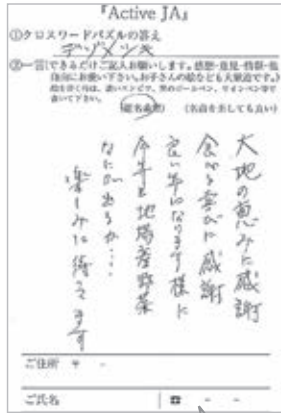 『Active JA』
①クロスワードパズルの答え
デゾメシキ
②一言(できるだけご記入お願いします。感想・意見・情報・他
自由にお書い下さい。お子さんの絵なども大歓迎です。)
絵を書く方は、濃いエンピツ、黒のボールペン、サインペン等で
書いて下さい。
(匿名希望) (名前を出しても良い)
大地の恵みに感謝
食べる喜びに感謝
良い年になります様に
今年も地場産野菜
なにが出るか・・・・
楽しみに待ってます
ご住所 〒 -
ご氏名 ☎ - -